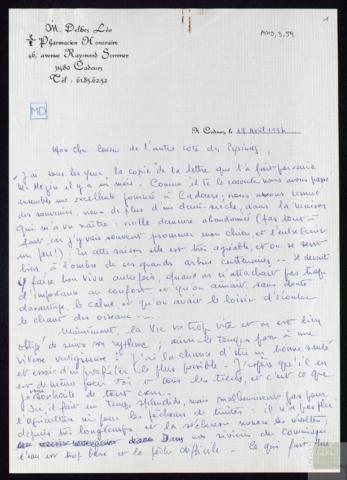 1
AMD, 3, 59
M. Delbos Léo
Pharmacien Honoraire
46, avenue Raymond Sommer
31480 Cadours
Tél : 61.85.62.52
MD
A Cadours, le 18 Avril 1994
Mon cher cousin de l'autre côté des Pyrénées,
J'ai sous les yeux, la copie de la lettre que t'a fait parvenir
Mr il y a un mois. Comme il te le raconte nous avons passé
ensemble une excellente journée à Cadours, nous avons remué
des souvenirs, vieux de plus d'un demi-siècle, dans la maison
qui m'a vu naître : vieille demeure abandonnée (pas tout-à-
fait, car j'y vais souvent promener mon chien et l'entretenir
un peu !). En cette saison elle est très agréable, et on se sent
bien, à l'ombre de ces grands arbres centenaires -- Il devait
y faire bon vivre autrefois, quand on n'attachait pas trop
d'importance au confort et qu'on aimait, sans doute
davantage, le calme et qu'on avait le loisir d'écouter
le chant des oiseaux ---.
Maintenant, la Vie va trop vite et on est bien
obligé de suivre son rythme ; aussi le temps passe à une
vitesse vertigineuse : j'ai la chance d'être en bonne santé
et essaie d'en profiter le plus possible - J'espère qu'il en
est de même pour toi et tous les tiens, et c'est ce que
je souhaite de tout cœur.
Ici, il fait un temps splendide, mais malheureusement pas pour
l'agriculture ni pour les pêcheurs de truites : il n'a pas plu
depuis très longtemps et la sécheresse menace les récoltes ;
Dans nos rivières du Comminges
l'eau est trop basse et la pêche difficile - Ce qui fait que